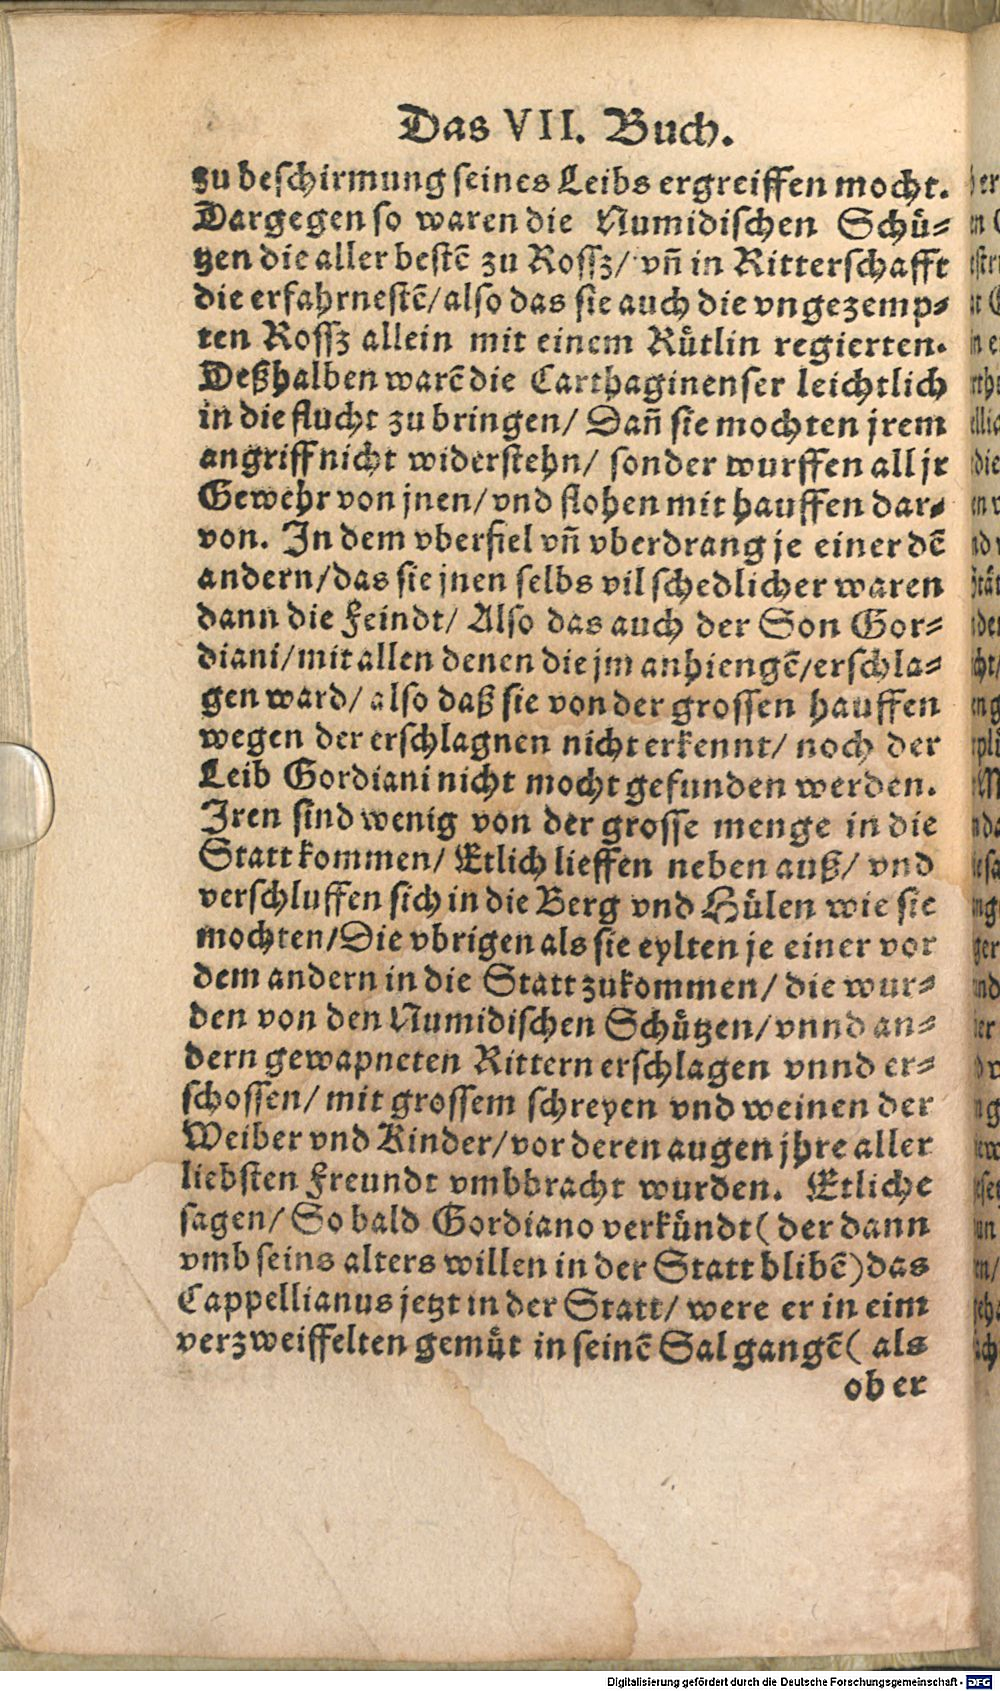 Das VII. Buch.
zu beschirmung seines Leibs ergreiffen mocht.
Dargegen so waren die Numidischen Schü⸗
tzen die aller bestē zu Rossz/ vñ in Ritterschafft
die erfahrnestē/ also das sie auch die vngezemp⸗
ten Rossz allein mit einem Rütlin regierten.
Deßhalben warē die Carthaginenser leichtlich
in die flucht zu bringen/ Dañ sie mochten jrem
angriff nicht widerstehn/ sonder wurffen all jr
Gewehr von jnen/ vnd flohen mit hauffen dar⸗
von. In dem vberfiel vñ vberdrang je einer dē
andern/ das sie jnen selbs vil schedlicher waren
dann die Feindt/ Also das auch der Son Gor⸗
diani/ mit allen denen die jm anhiengē/ erschla⸗
gen ward/ also daß sie von der grossen hauffen
wegen der erschlagnen nicht erkennt/ noch der
Leib Gordiani nicht mocht gefunden werden.
Iren sind wenig von der grosse menge in die
Statt kommen/ Etlich lieffen neben auß/ vnd
verschluffen sich in die Berg vnd Hülen wie sie
mochten/ Die vbrigen als sie eylten je einer vor
dem andern in die Statt zukommen/ die wur⸗
den von den Numidischen Schützen/ vnnd an⸗
dern gewapneten Rittern erschlagen vnnd er⸗
schossen/ mit grossem schreyen vnd weinen der
Weiber vnd Kinder/ vor deren augen jhre aller
liebsten Freundt vmbbracht wurden. Etliche
sagen/ So bald Gordiano verkündt ( der dann
vmb seins alters willen in der Statt blibē) das
Cappellianus jetzt in der Statt/ were er in eim
verzweiffelten gemüt in seinē Sal gangē ( als
ob er
Digitalisierung gefördert durch die Deutsche Forschungsgemeinschaft - DFG